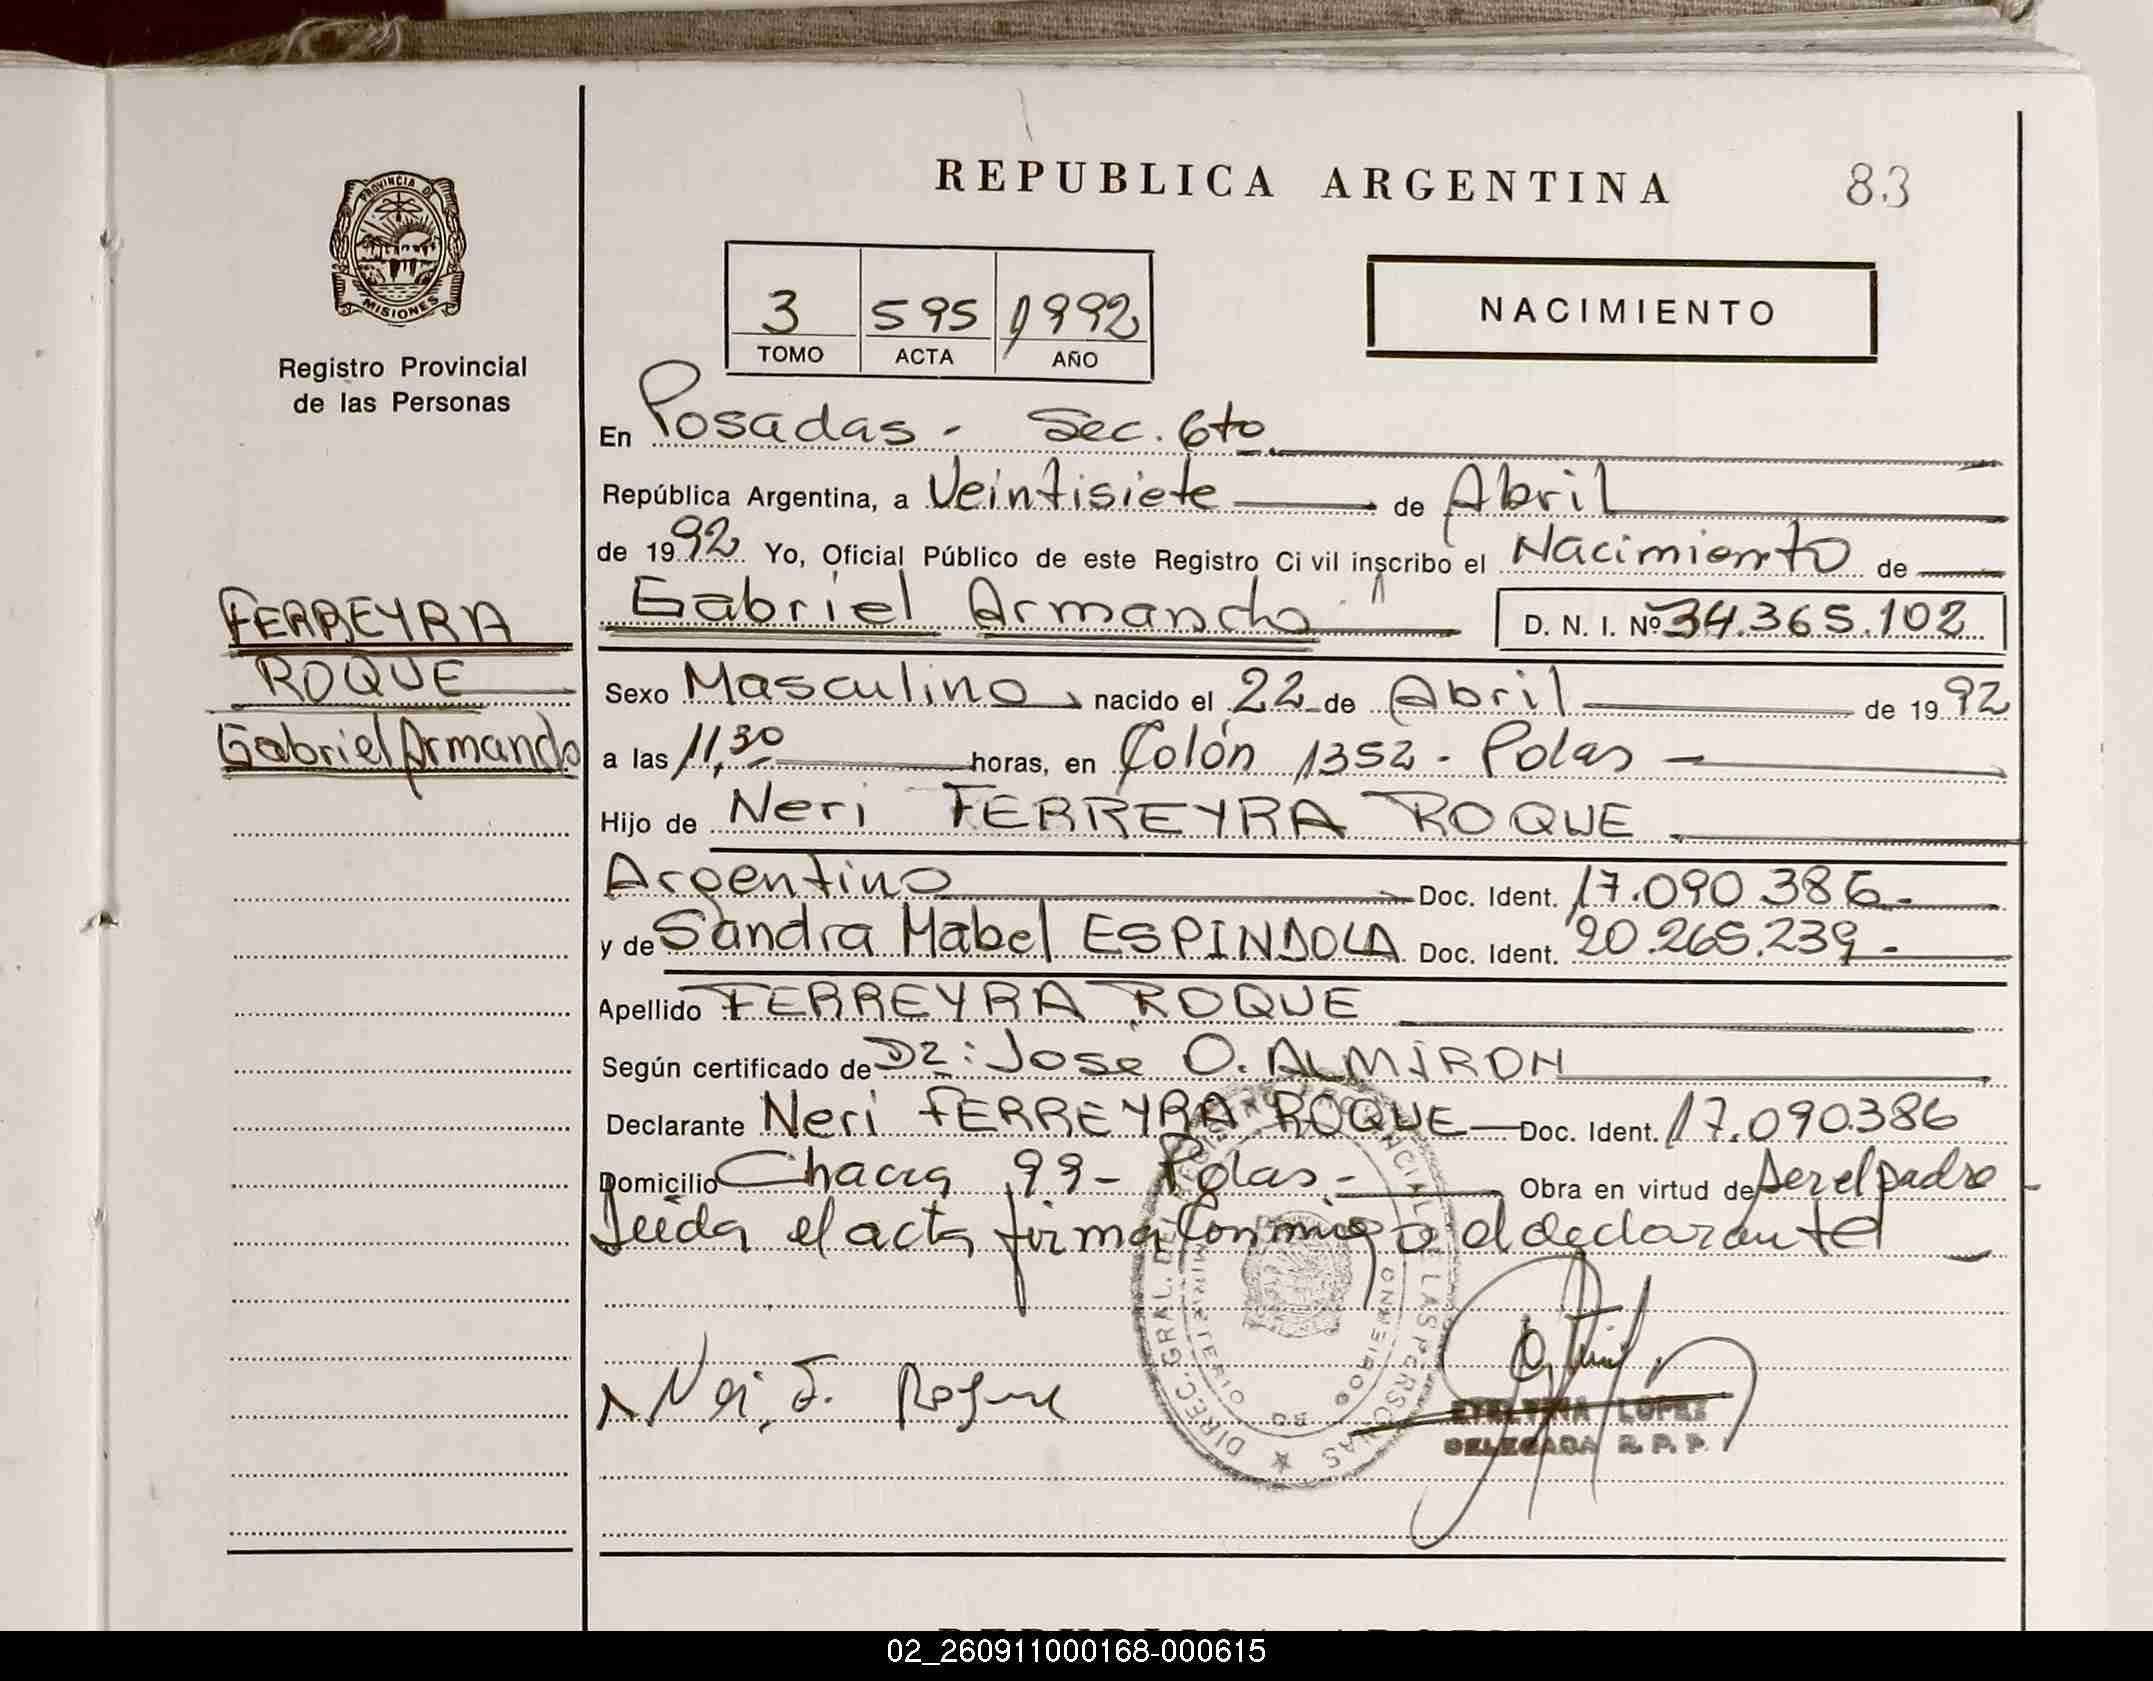 REPUBLICA ARGENTINA
83
PROVINCIA DE
MISIONES
Registro Provincial
de las Personas
3 595 1992
TOMO ACTA AÑO
NACIMIENTO
En Posadas - Sec. 6to
República Argentina, a Veintisiete de Abril
de 1992 Yo, Oficial Público de este Registro Civil inscribo el Nacimiento de
Gabriel Armando D. N. I. Nº 34.365.102
FERREYRA
ROQUE
Gabriel Armando
Sexo Masculino, nacido el 22 de Abril de 1992
a las 11,30 horas, en Colón 1352 - Pdas
Hijo de Neri FERREYRA ROQUE
Argentino Doc. Ident. 17.090.386.-
y de Sandra Mabel ESPINDOLA Doc. Ident. 20.265.239.-
Apellido FERREYRA ROQUE
Según certificado de Dr: Jose O. ALMIRON
Declarante Neri FERREYRA ROQUE Doc. Ident. 17.090.386
Domicilio Chacra 99 - Pdas.- Obra en virtud de ser el padre
Leida el acta firma conmigo el declarante
Neri F. Roque
ETELVINA LOPEZ
DELEGADA R. P. P.
02_260911000168-000615